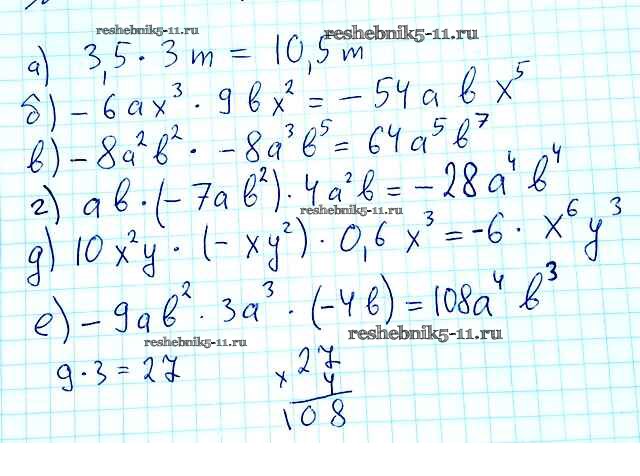 reshebnik5-11.ru reshebnik5-11.ru
а) 3,5 · 3 m = 10,5 m
б) - 6ax³ · 9вx² = - 54а в x⁵
в) - 8a²в² · - 8a³в⁵ = 64a⁵в⁷
г) ав · (- 7ав²) · 4a²в = - 28a⁴в⁴
reshebnik5-11.ru
д) 10x²y · (- xy²) · 0,6 x³ = -6 · x⁶y³
е) - 9ав² · 3a³ · (- 4в) = 108a⁴в³
reshebnik5-11.ru reshebnik5-11.ru
9 · 3 = 27
27
× 4
108